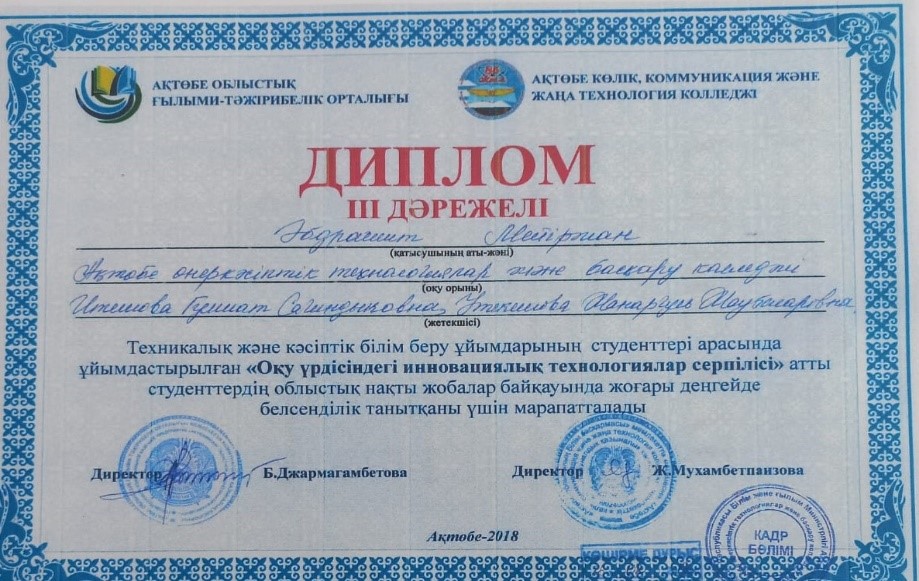 АҚТӨБЕ ОБЛЫСТЫҚ
ҒЫЛЫМИ-ТӘЖІРИБЕЛІК ОРТАЛЫҒЫ
АҚТӨБЕ КӨЛІК, КОММУНИКАЦИЯ ЖӘНЕ
ЖАҢА ТЕХНОЛОГИЯ КОЛЛЕДЖІ
ДИПЛОМ
III ДӘРЕЖЕЛІ
Әбдрашит Мейіржан
(қатысушының аты-жөні)
Ақтөбе өнеркәсіптік технологиялар және басқару колледжі
(оқу орыны)
Итешова Гулшат Сагиндыковна, Утекешова Жанаргуль
(жетекшісі)
Техникалық және кәсіптік білім беру ұйымдарының студенттері арасында
ұйымдастырылған «Оқу үрдісіндегі инновациялық технологиялар серпілісі» атты
студенттердің облыстық нақты жобалар байқауында жоғары деңгейде
белсенділік танытқаны үшін марапатталады
Директор Б.Джармагамбетова
Директор Ж.Мухамбетпаизова
Ақтөбе-2018
КӨШІРМЕ ДҰРЫС
КАДР
БӨЛІМІ